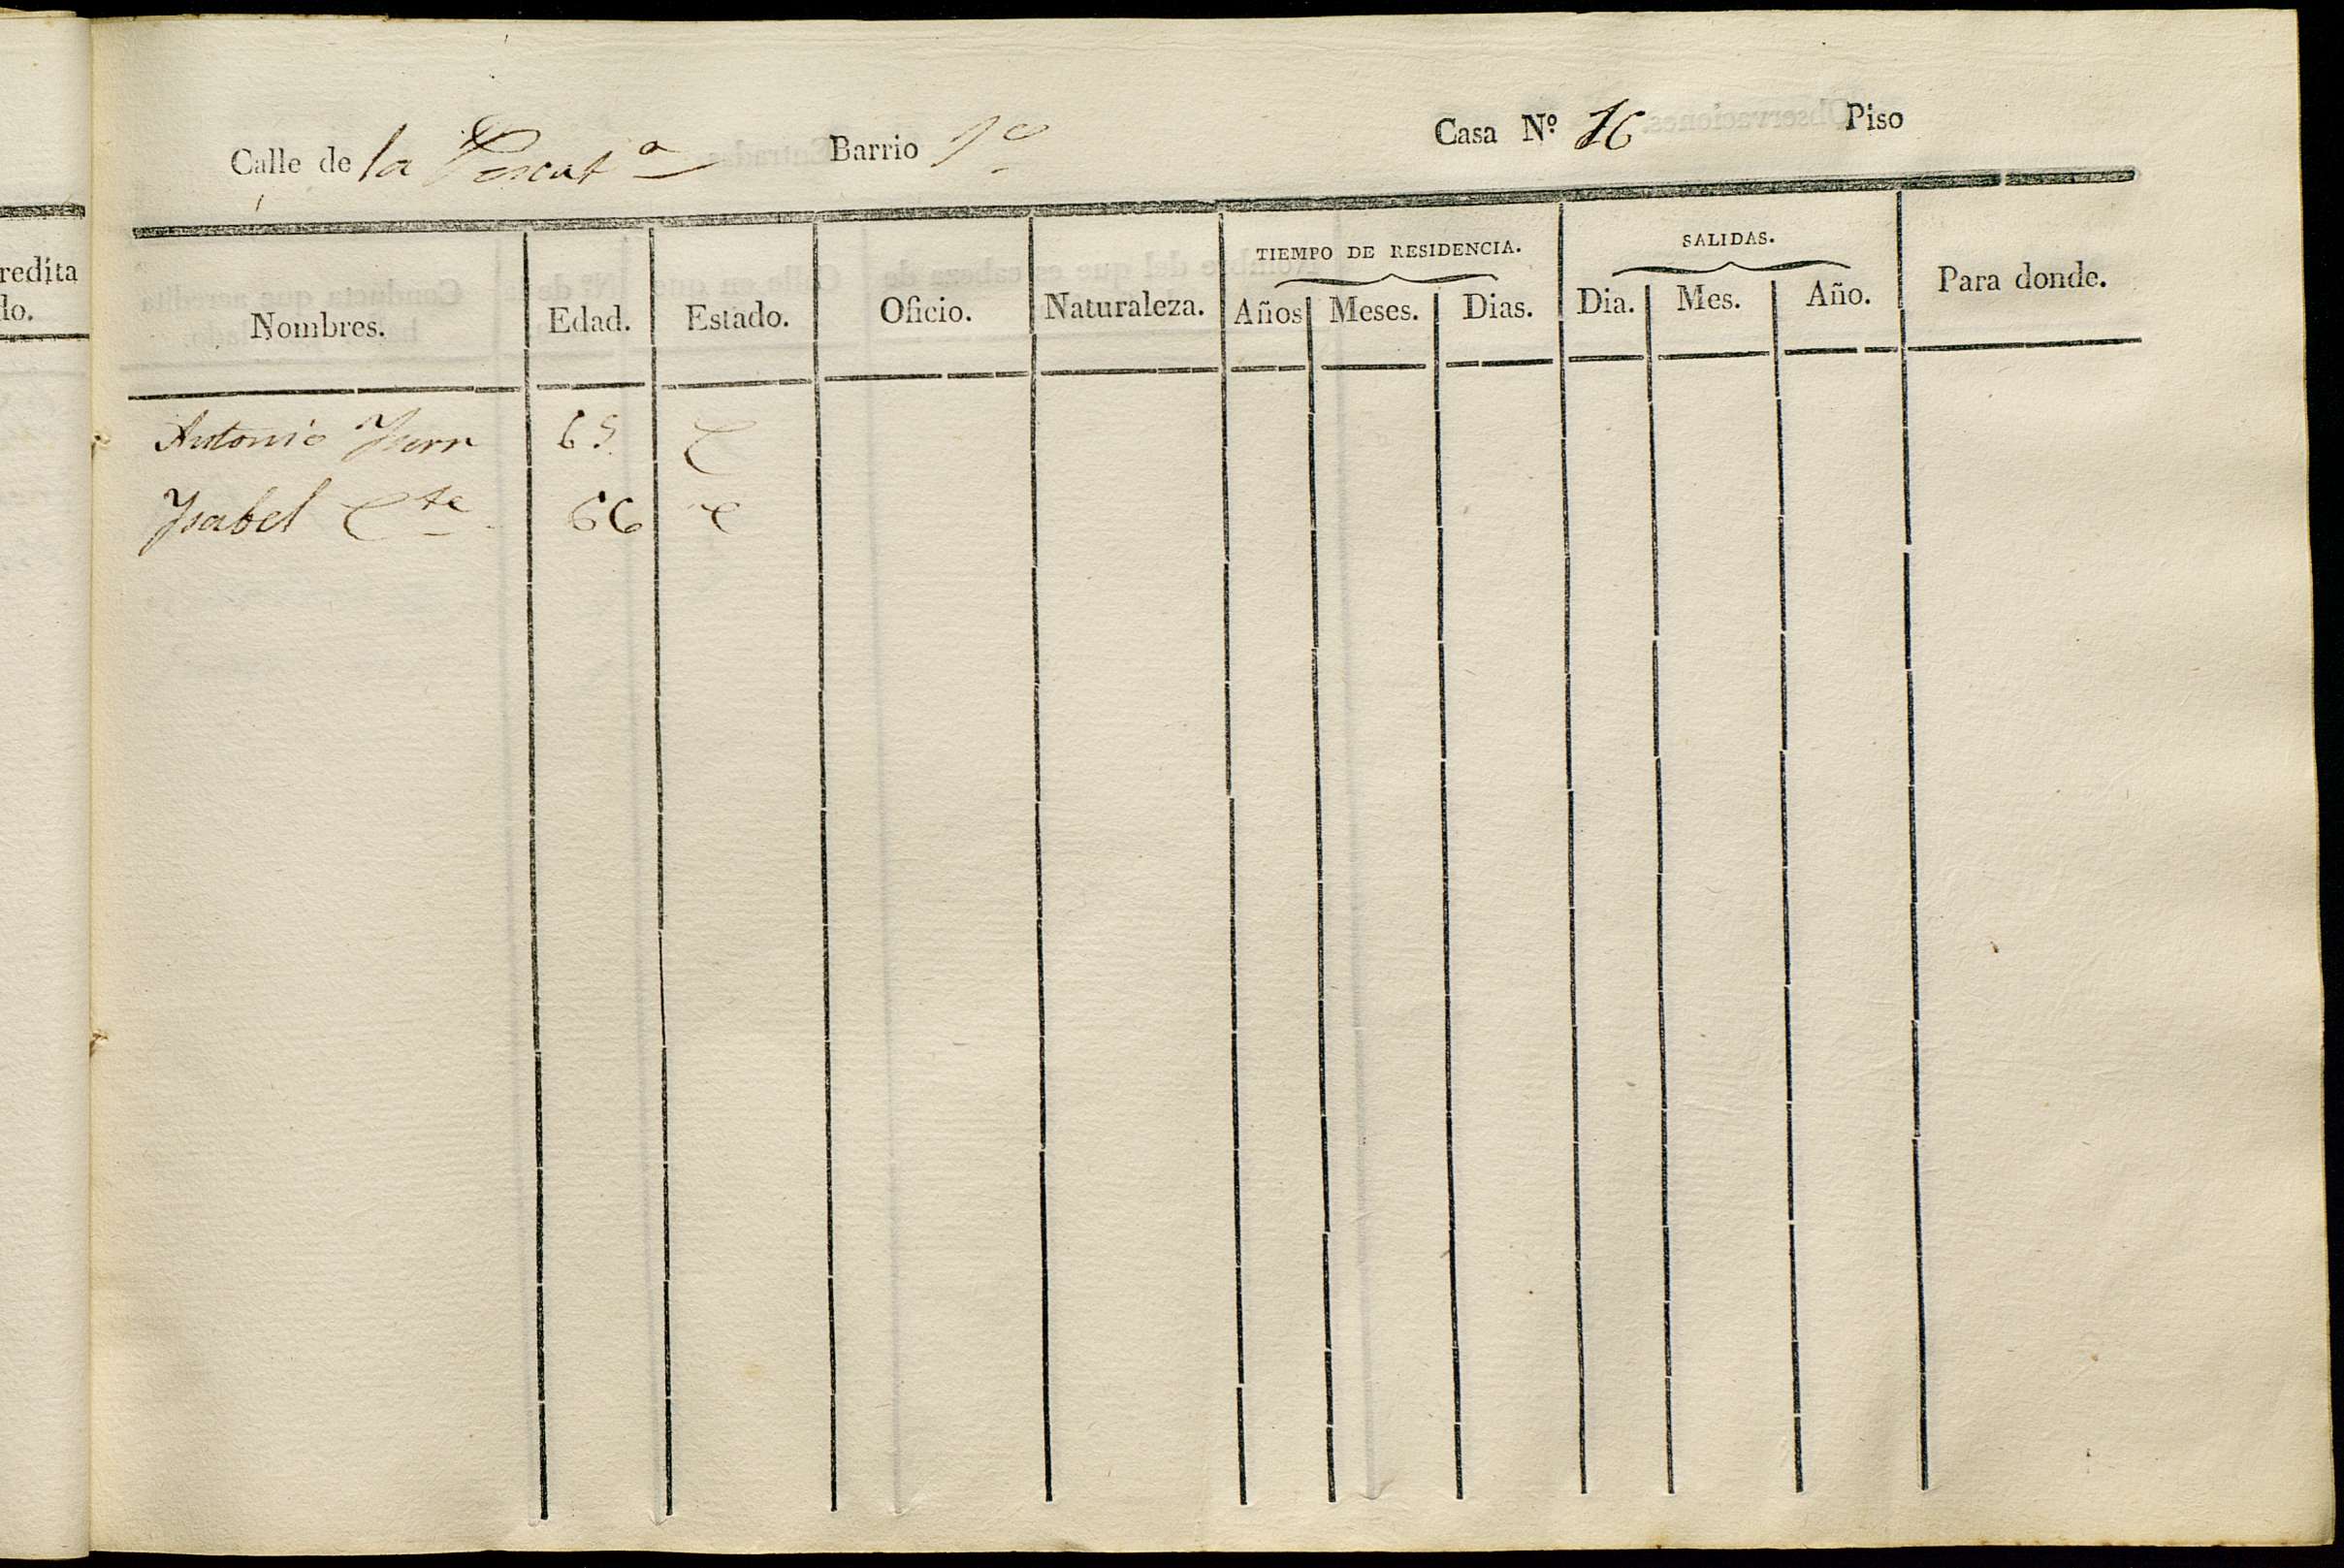 Calle de la Pescatª Barrio 1º Casa Nº 16 Piso
redita
do.
Nombres. Edad. Estado. Oficio. Naturaleza. TIEMPO DE RESIDENCIA. Años Meses. Dias. SALIDAS. Dia. Mes. Año. Para donde.
Antonio 65 C
Ysabel 66 C